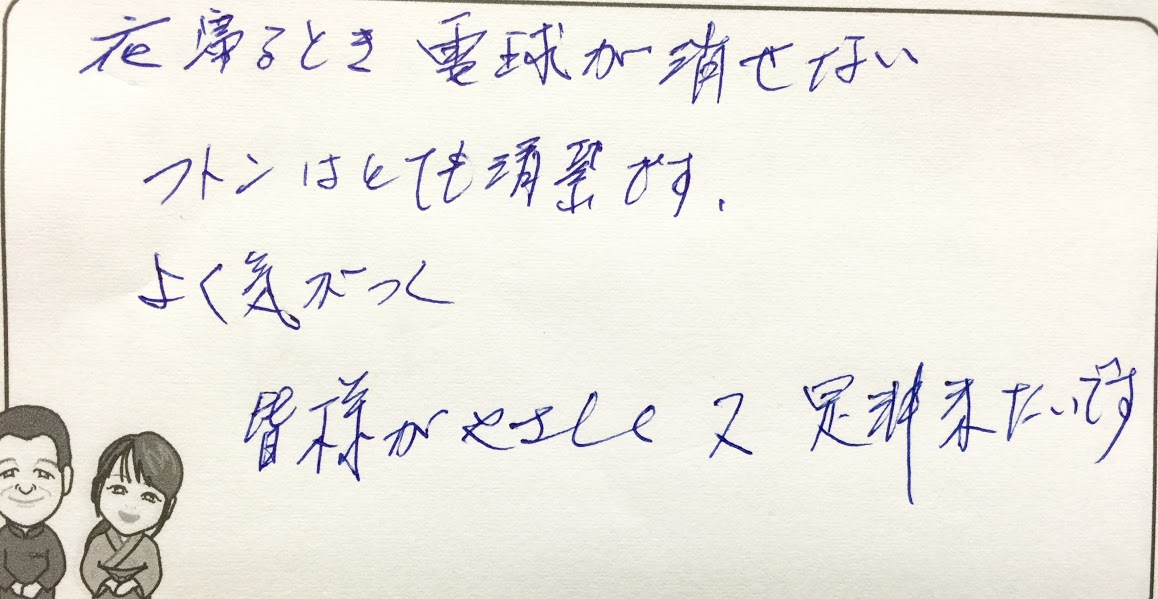 夜寝るとき 電球が消せない
フトンはとても清潔です.
よく気がつく
皆様がやさしく 又 是非来たいです